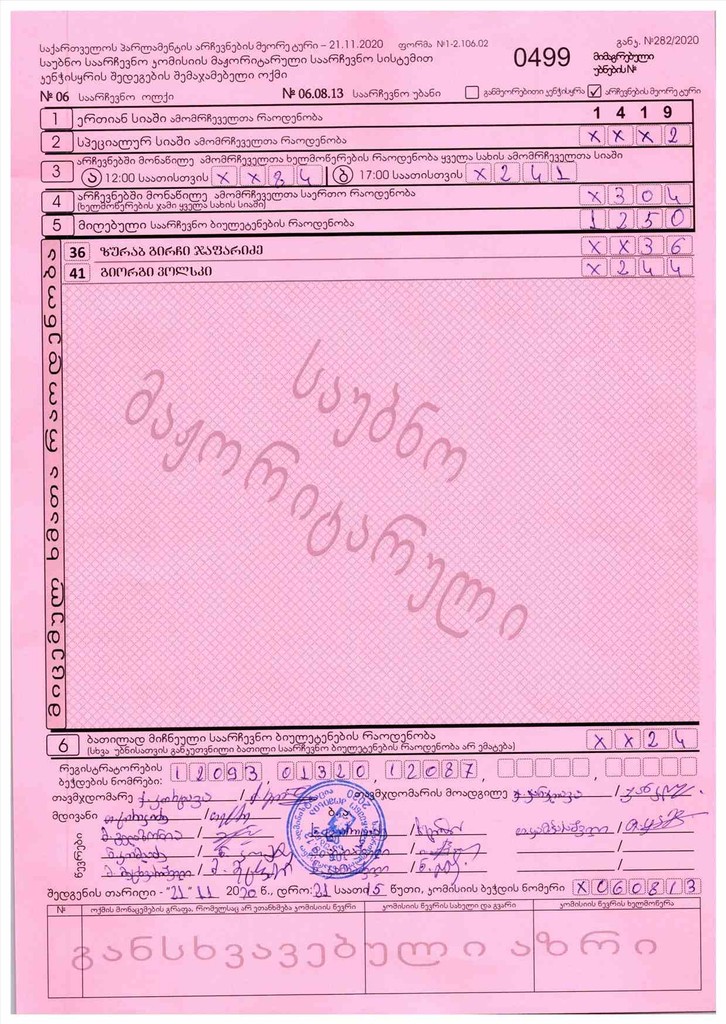 საქართველოს პარლამენტის არჩევნების მეორე ტური – 21.11.2020 ფორმა №1-2.106.02
განკ. №282/2020
საუბნო საარჩევნო კომისიის მაჟორიტარული საარჩევნო სისტემით
0499
მიმაგრებული
კენჭისყრის შედეგების შემაჯამებელი ოქმი
უბნების№
№ 06 საარჩევნო ოლქი № 06.08.13 საარჩევნო უბანი განმეორებითი კენჭისყრა ✓ არჩევნების მეორე ტური
1 ერთიან სიაში ამომრჩეველთა რაოდენობა 1 4 1 9
2 სპეციალურ სიაში ამომრჩეველთა რაოდენობა X X X 2
არჩევნებში მონაწილე ამომრჩეველთა ხელმოწერების რაოდენობა ყველა სახის ამომრჩეველთა სიაში
3 ა 12:00 საათისთვის X X 8 4 ბ 17:00 საათისთვის X 2 4 1
4 არჩევნებში მონაწილე ამომრჩეველთა საერთო რაოდენობა X 3 0 4
(ხელმოწერების ჯამი ყველა სახის სიაში)
5 მიღებული საარჩევნო ბიულეტენების რაოდენობა 1 2 5 0
მიცემულ ხმათა რაოდენობა
36 ზურაბ გირჩი ჯაფარიძე X X 3 6
41 გიორგი ვოლსკი X 2 4 4
საუბნო
მაჟორიტარული
6 ბათილად მიჩნეული საარჩევნო ბიულეტენების რაოდენობა X X 2 4
(სხვა უბნისათვის განკუთვნილი ბათილი საარჩევნო ბიულეტენების რაოდენობა არ ემატება)
რეგისტრატორების
ბეჭდების ნომრები: 1 2 0 9 3 , 0 1 3 2 0 , 1 2 0 8 7 ,
თავმჯდომარე
თავმჯდომარის მოადგილე
მდივანი
წევრები
შედგენის თარიღი - "21" 11 2020 წ., დრო: 21 საათი 5 წუთი, კომისიის ბეჭდის ნომერი X 0 6 0 8 1 3
№ ოქმის მონაცემების გრაფა, რომელსაც არ ეთანხმება კომისიის წევრი კომისიის წევრის სახელი და გვარი კომისიის წევრის ხელმოწერა
განსხვავებული აზრი